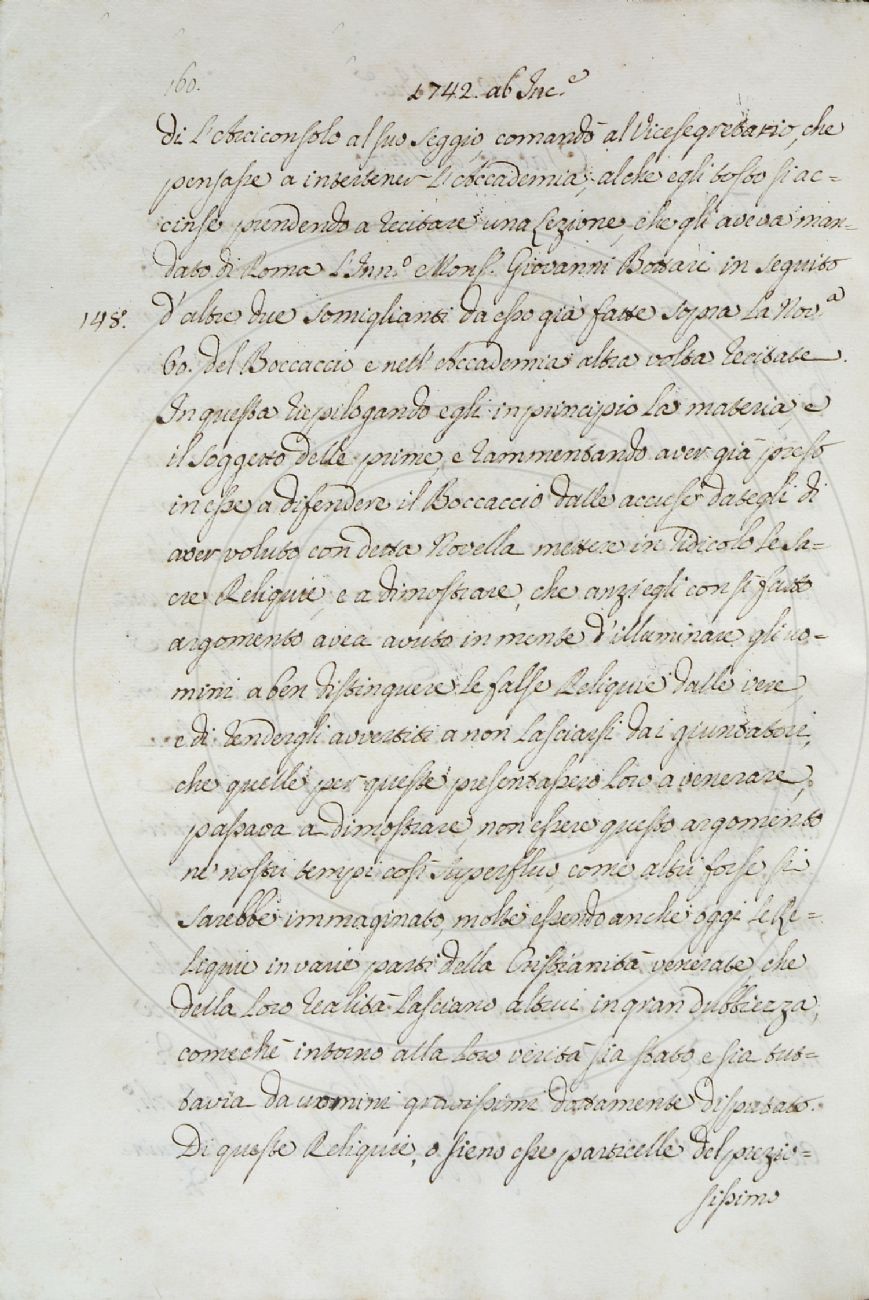 160.
1742. ab Inc.e
di L'Arciconsolo al suo seggio, comandò al Vicesegretario, che
pensasse a intertener L'Accademia; al che egli tosto si ac=
cinse prendendo a recitare una Lezione, che gli aveva man=
dato di Roma L'Inn.o e Mons.r Giovanni Bottari in seguito
148. d'altre due somiglianti da esso già fatte sopra La Nov.a
60. del Boccaccio e nell'Accademia altra volta recitate.
In questa riepilogando egli in principio La materia, e
il soggetto delle prime, e rammentando aver già preso
in esse a difendere il Boccaccio dalle accuse dategli di
aver voluto con detta Novella mettere in ridicolo Le Sa=
cre Reliquie, e a dimostrare, che anzi egli con sì fatto
argomento avea avuto in mente d'illuminare gli uo=
mini a ben distinguere Le false Reliquie dalle vere
e di rendergli avvertiti a non Lasciarsi da i giuntatori,
che quelle per queste presentassero Loro a venerare,
passava a dimostrare, non essere questo argomento
ne' nostri tempi così superfluo, come altri forse si
sarebbe immaginato, molte essendo anche oggi Le Re=
liquie in varie parti della Cristianità venerate, che
della Loro realità Lasciano altrui in gran dubbiezza,
comechè intorno alla Loro verità sia stato e sia tut=
tavia da uomini gravissimi dottamente disputato.
Di queste Reliquie, o sieno esse particelle del prezio=
sissimo